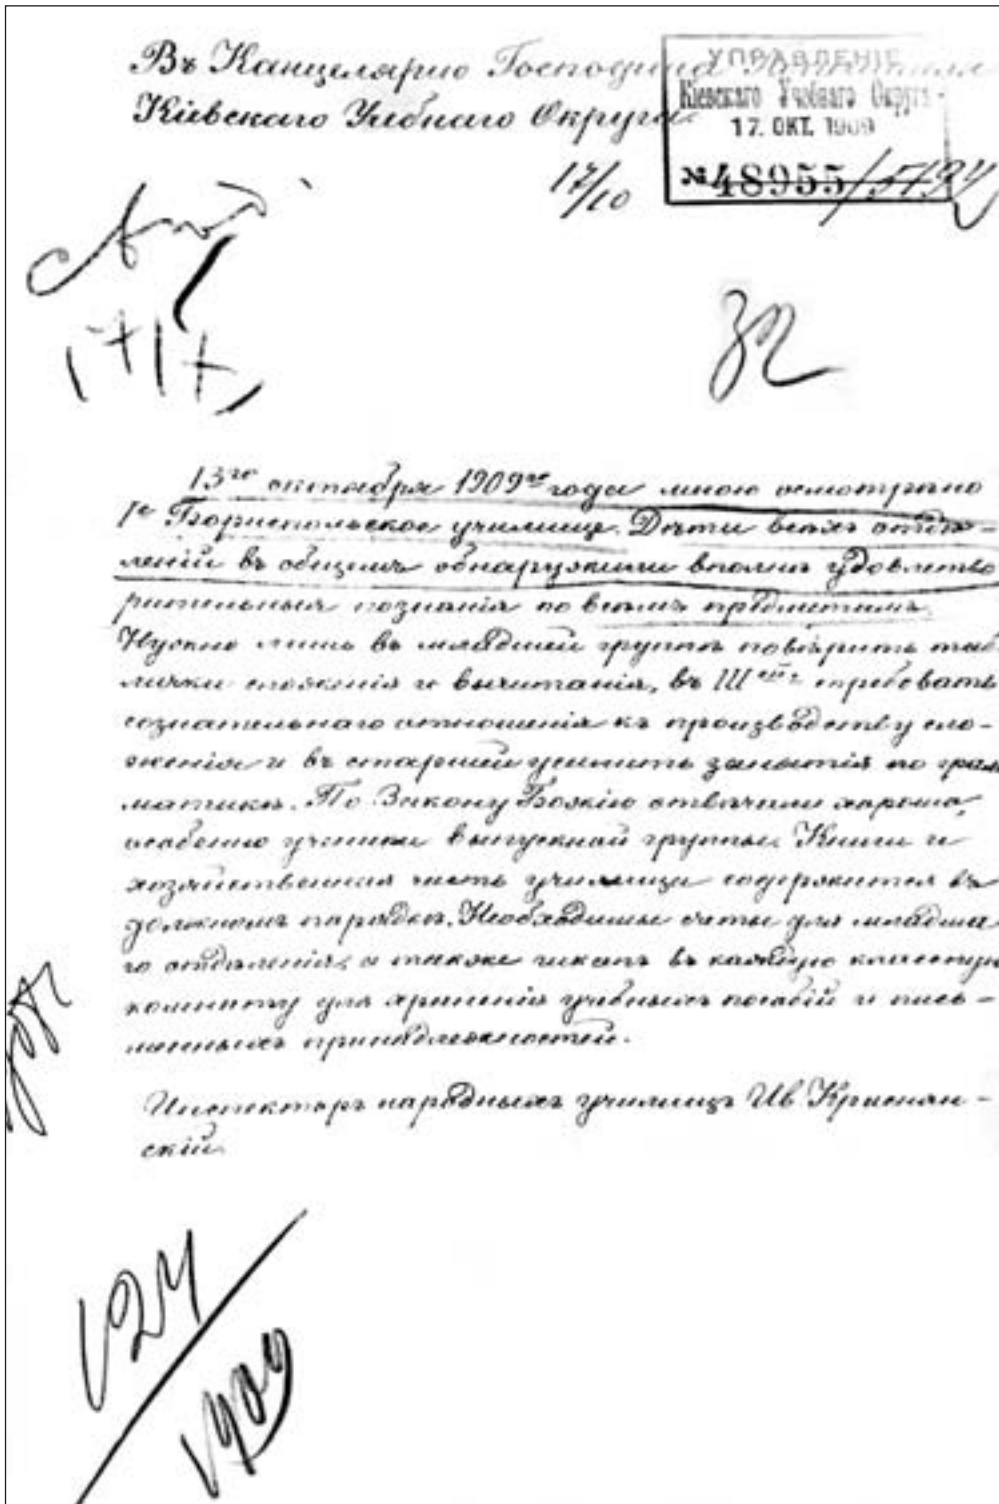 Въ Канцелярію Господина Попечителя
Кіевскаго Учебнаго Округа.
УПРАВЛЕНІЕ
Кіевскаго Учебнаго Округа
17. ОКТ. 1909
№ 48955/5197
17/10
32
13го октября 1909го года мною осмотрѣно
1е Бориспольское училище. Дѣти всѣхъ отдѣ-
леній въ общемъ обнаружили вполнѣ удовлетво
рительныя познанія по всѣмъ предметамъ.
Нужно лишь въ младшей группѣ повторить таб
лички сложенія и вычитанія, въ III требовать
сознательнаго отношенія къ производству сло-
женія и въ старшей усилить занятія по грам
матикѣ. По Закону Божію отвѣчали хорошо,
особенно ученики выпускной группы. Книги и
хозяйственная часть училища содержится въ
должномъ порядкѣ. Необходимы счеты для младша
го отдѣленія, а также шкапъ въ каждую классную
комнату для храненія учебныхъ пособій и пись-
менныхъ принадлежностей.
Инспекторъ народныхъ училищъ Ив.
скій.
124
1909